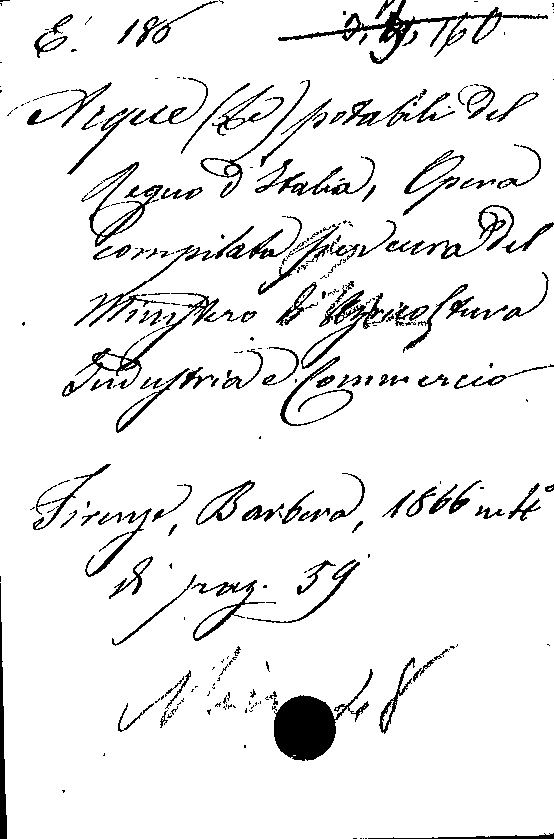 E. 186 3. 9. 160
Acque (Le) potabili del
Regno d'Italia, Opera
compilata per cura del
Ministero d'Agricoltura
Industria e Commercio
Firenze, Barbera, 1866 in 4º
di pag. 59